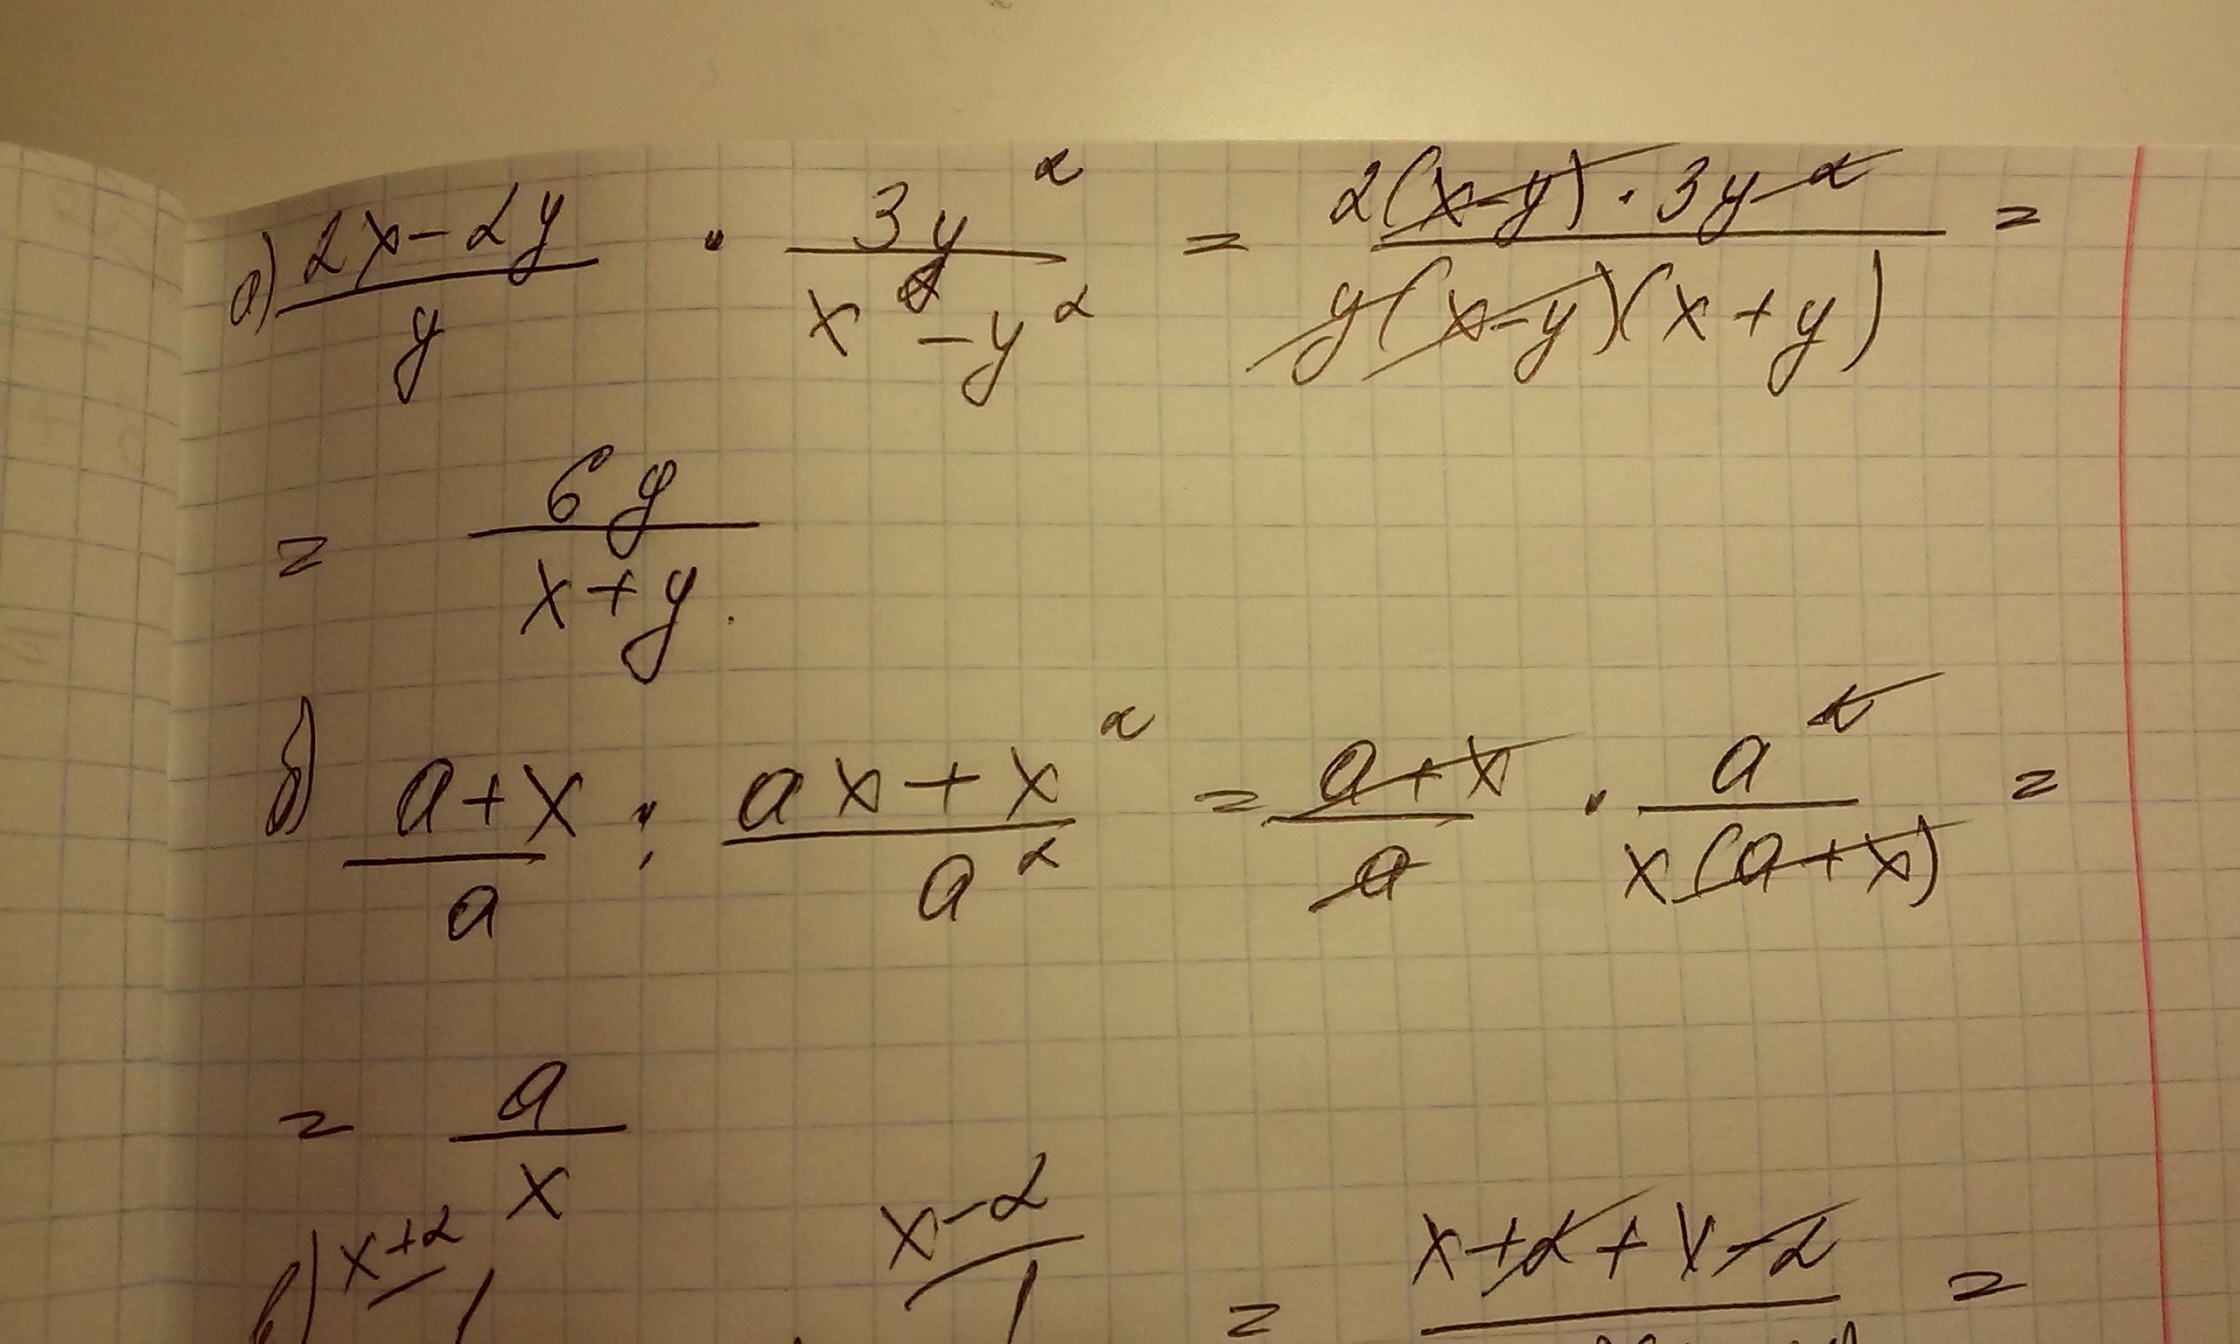 а) (2x-2y)/y · 3y²/(x²-y²) = 2(x-y)·3y²/(y(x-y)(x+y)) =
= 6y/(x+y).
б) (a+x)/a : (ax+x²)/a² = (a+x)/a · a²/(x(a+x)) =
= a/x
в) x+2 x-2 = x+2+x-2 =